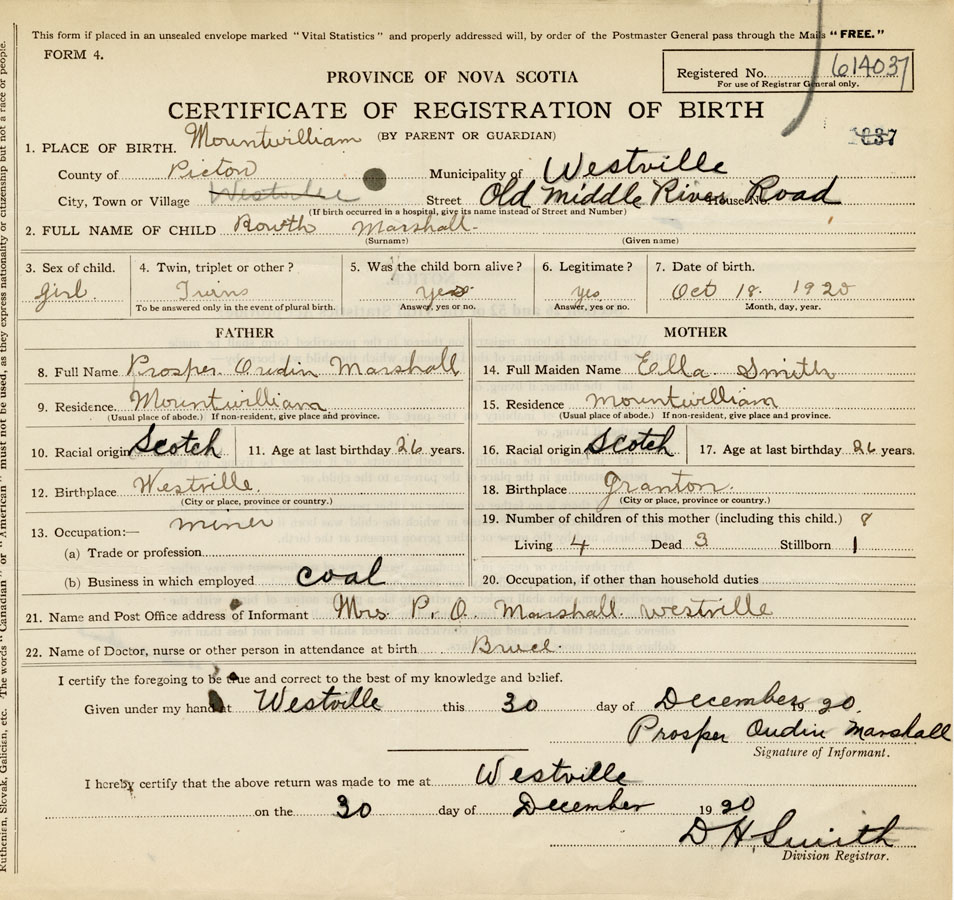 This form if placed in an unsealed envelope marked "Vital Statistics" and properly addressed will, by order of the Postmaster General pass through the Mails "FREE."
FORM 4.
Registered No. 614037
For use of Registrar General only.
PROVINCE OF NOVA SCOTIA
CERTIFICATE OF REGISTRATION OF BIRTH
(BY PARENT OR GUARDIAN)
1037
1. PLACE OF BIRTH. Mountwilliam
County of Pictou Municipality of Westville
City, Town or Village Westville Street Old Middle River Road House No.
(If birth occurred in a hospital, give its name instead of Street and Number)
2. FULL NAME OF CHILD Rowth Marshall
(Surname) (Given name)
3. Sex of child. 4. Twin, triplet or other? 5. Was the child born alive? 6. Legitimate? 7. Date of birth.
girl Twins yes yes Oct 18. 1920
To be answered only in the event of plural birth. Answer, yes or no. Answer, yes or no. Month, day, year.
FATHER MOTHER
8. Full Name Prosper Oudin Marshall 14. Full Maiden Name Ella Smith
9. Residence Mountwilliam 15. Residence mountwilliam
(Usual place of abode.) If non-resident, give place and province. (Usual place of abode.) If non-resident, give place and province.
10. Racial origin Scotch 11. Age at last birthday 26 years. 16. Racial origin Scotch 17. Age at last birthday 26 years.
12. Birthplace Westville. 18. Birthplace Granton.
(City or place, province or country.) (City or place, province or country.)
13. Occupation:— miner 19. Number of children of this mother (including this child.) 8
(a) Trade or profession Living 4 Dead 3 Stillborn 1
(b) Business in which employed coal 20. Occupation, if other than household duties
21. Name and Post Office address of Informant Mrs. P. O. Marshall. westville
22. Name of Doctor, nurse or other person in attendance at birth
I certify the foregoing to be true and correct to the best of my knowledge and belief.
Given under my hand at Westville this 30 day of December 20.
Prosper Oudin Marshall
Signature of Informant.
I hereby certify that the above return was made to me at Westville
on the 30 day of December 1920
D H Smith
Division Registrar.
Ruthenian, Slovak, Galician, etc. The words "Canadian" or "American" must not be used, as they express nationality or citizenship but not a race or people.